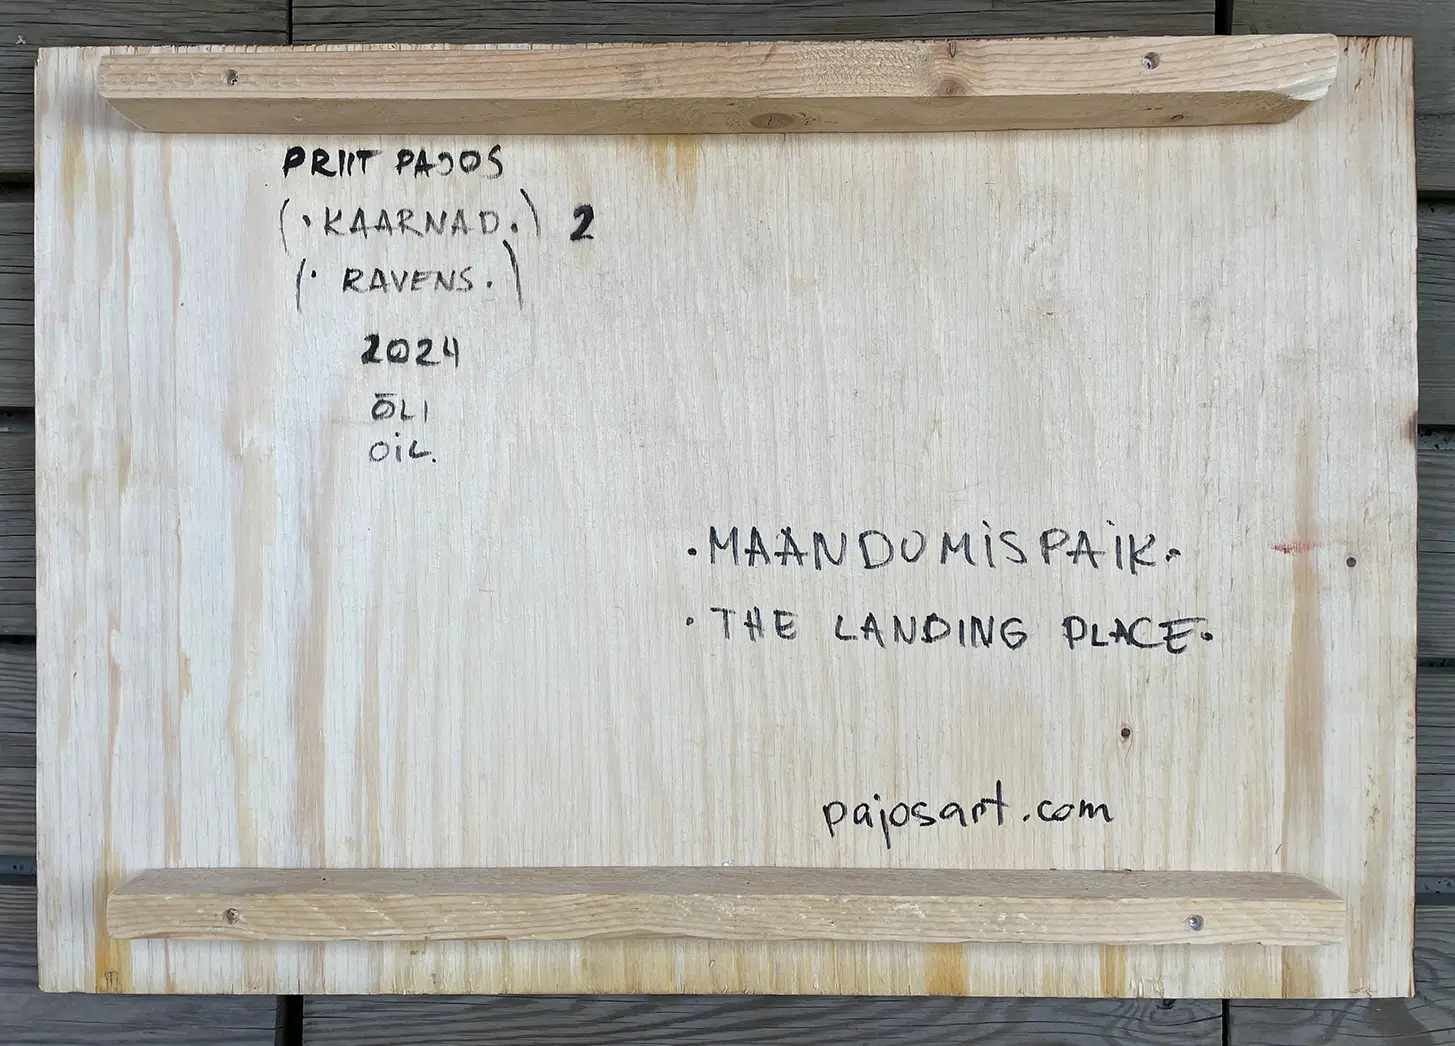 PRIIT PAJOS
(·KAARNAD.) 2
(· RAVENS.)
2024
ÕLI
OiL.
·MAANDUMiSPAiK·
·THE LANDING PLACE·
pajosart.com